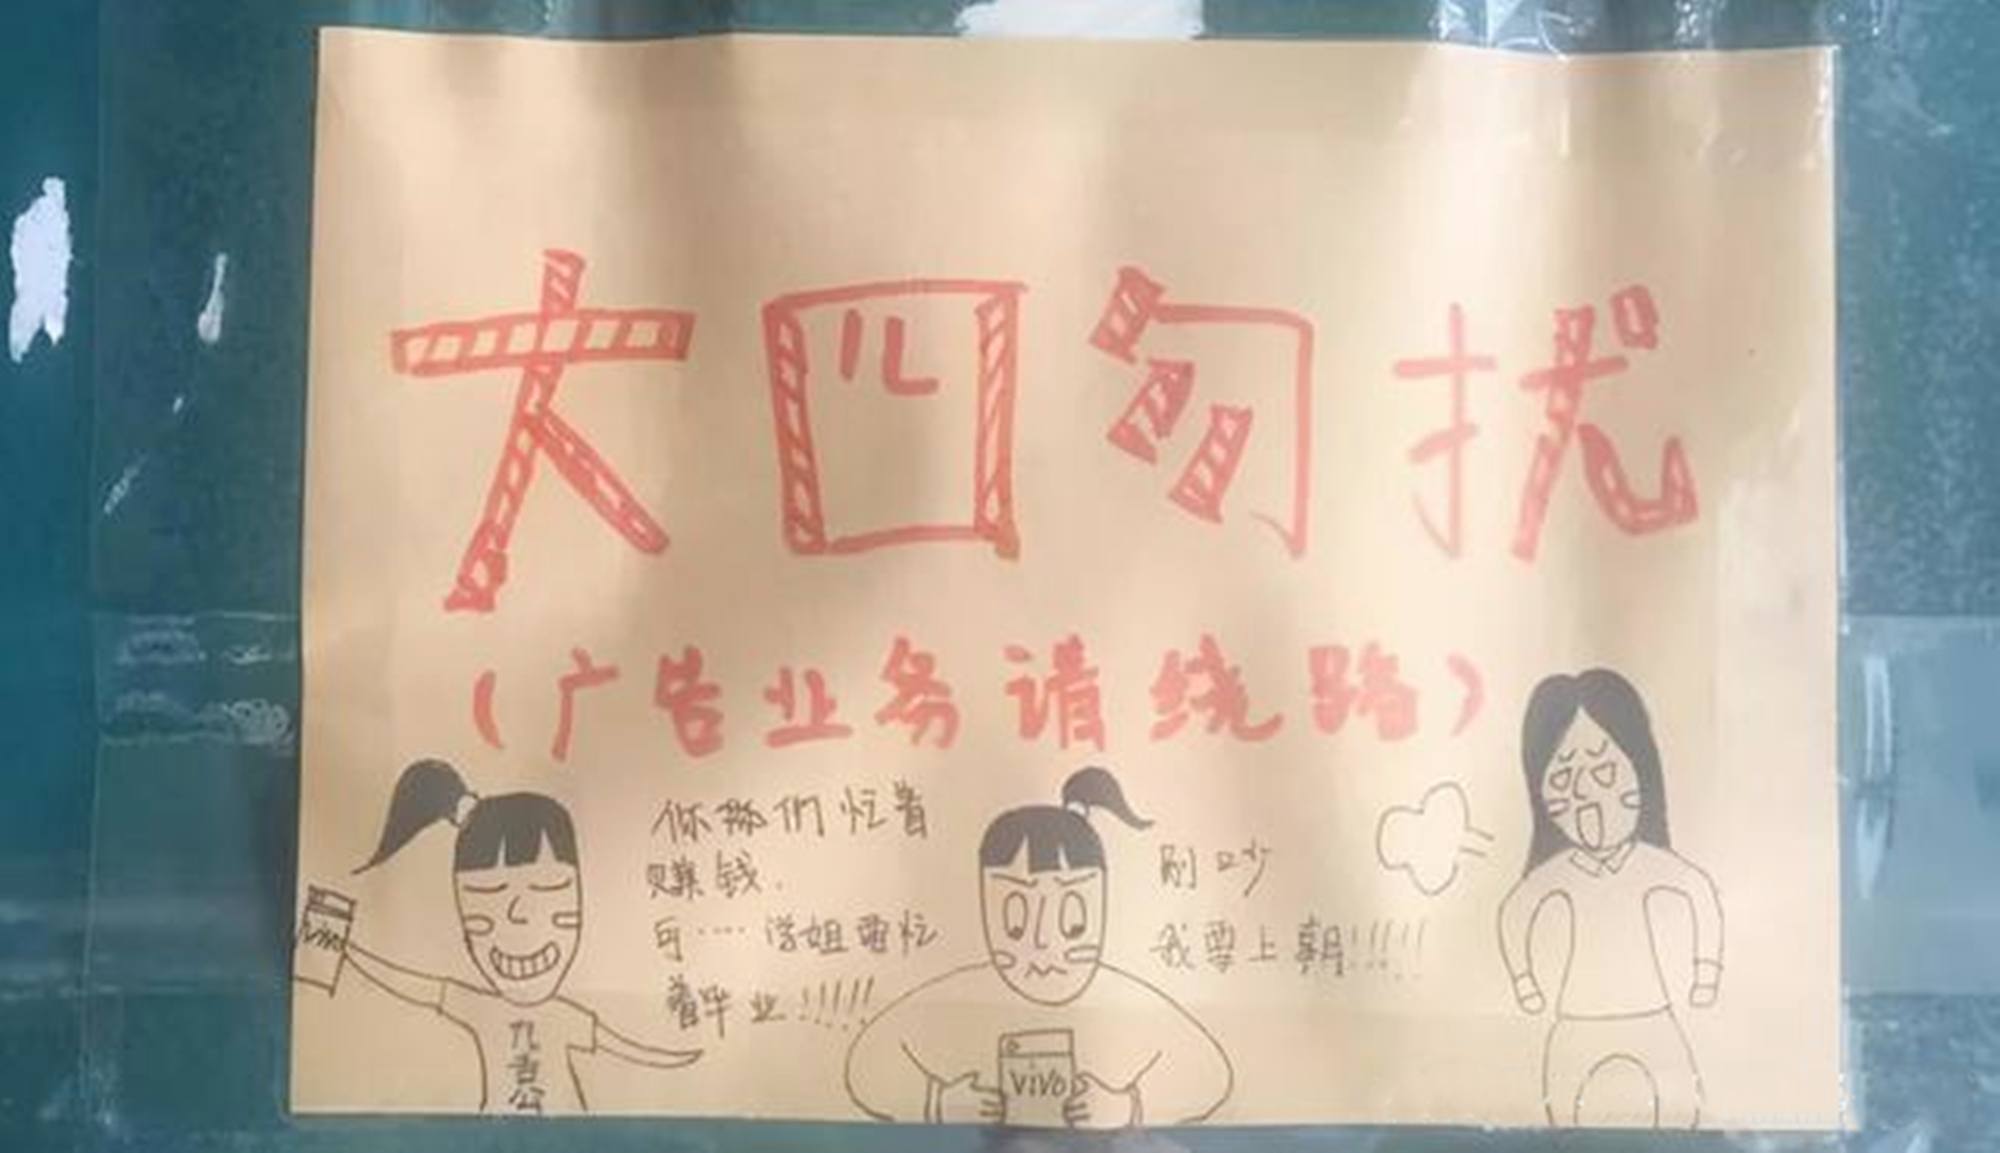 大四勿扰
(广告业务请绕路)
你揪们忙着
赚钱.
可····学姐要忙
着毕业!!!!!
别吵
我要上朝!!!!!
vivo
vivo
九吉公